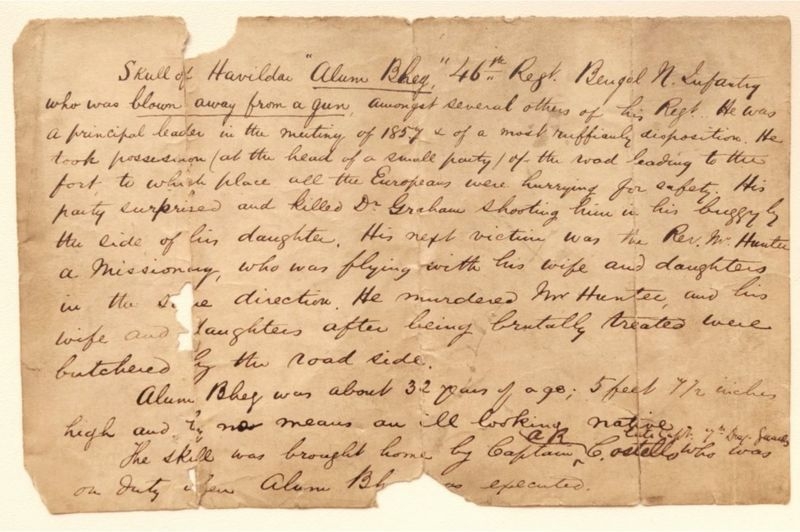 Skull of Havildar "Alum Bheg," 46th Regt. Bengal N. Infantry
who was blown away from a gun, amongst several others of his Regt. He was
a principal leader in the mutiny of 1857 & of a most ruffianly disposition. He
took possession (at the head of a small party) of the road leading to the
fort to which place all the Europeans were hurrying for safety. His
party surprised and killed Dr. Graham shooting him in his buggy by
the side of his daughter. His next victim was the Rev. Mr. Hunter
a Missionary, who was flying with his wife and daughters
in the direction. He murdered Mr Hunter, and his
wife and daughters after being brutally treated were
butchered by the road side.
Alum Bheg was about 32 years of age; 5 feet 7 1/2 inches
high and by no means an ill looking native
AR late Capt. 7th Drag. Guards
The skull was brought home by Captain Costello who was
on duty when Alum Bh as executed.